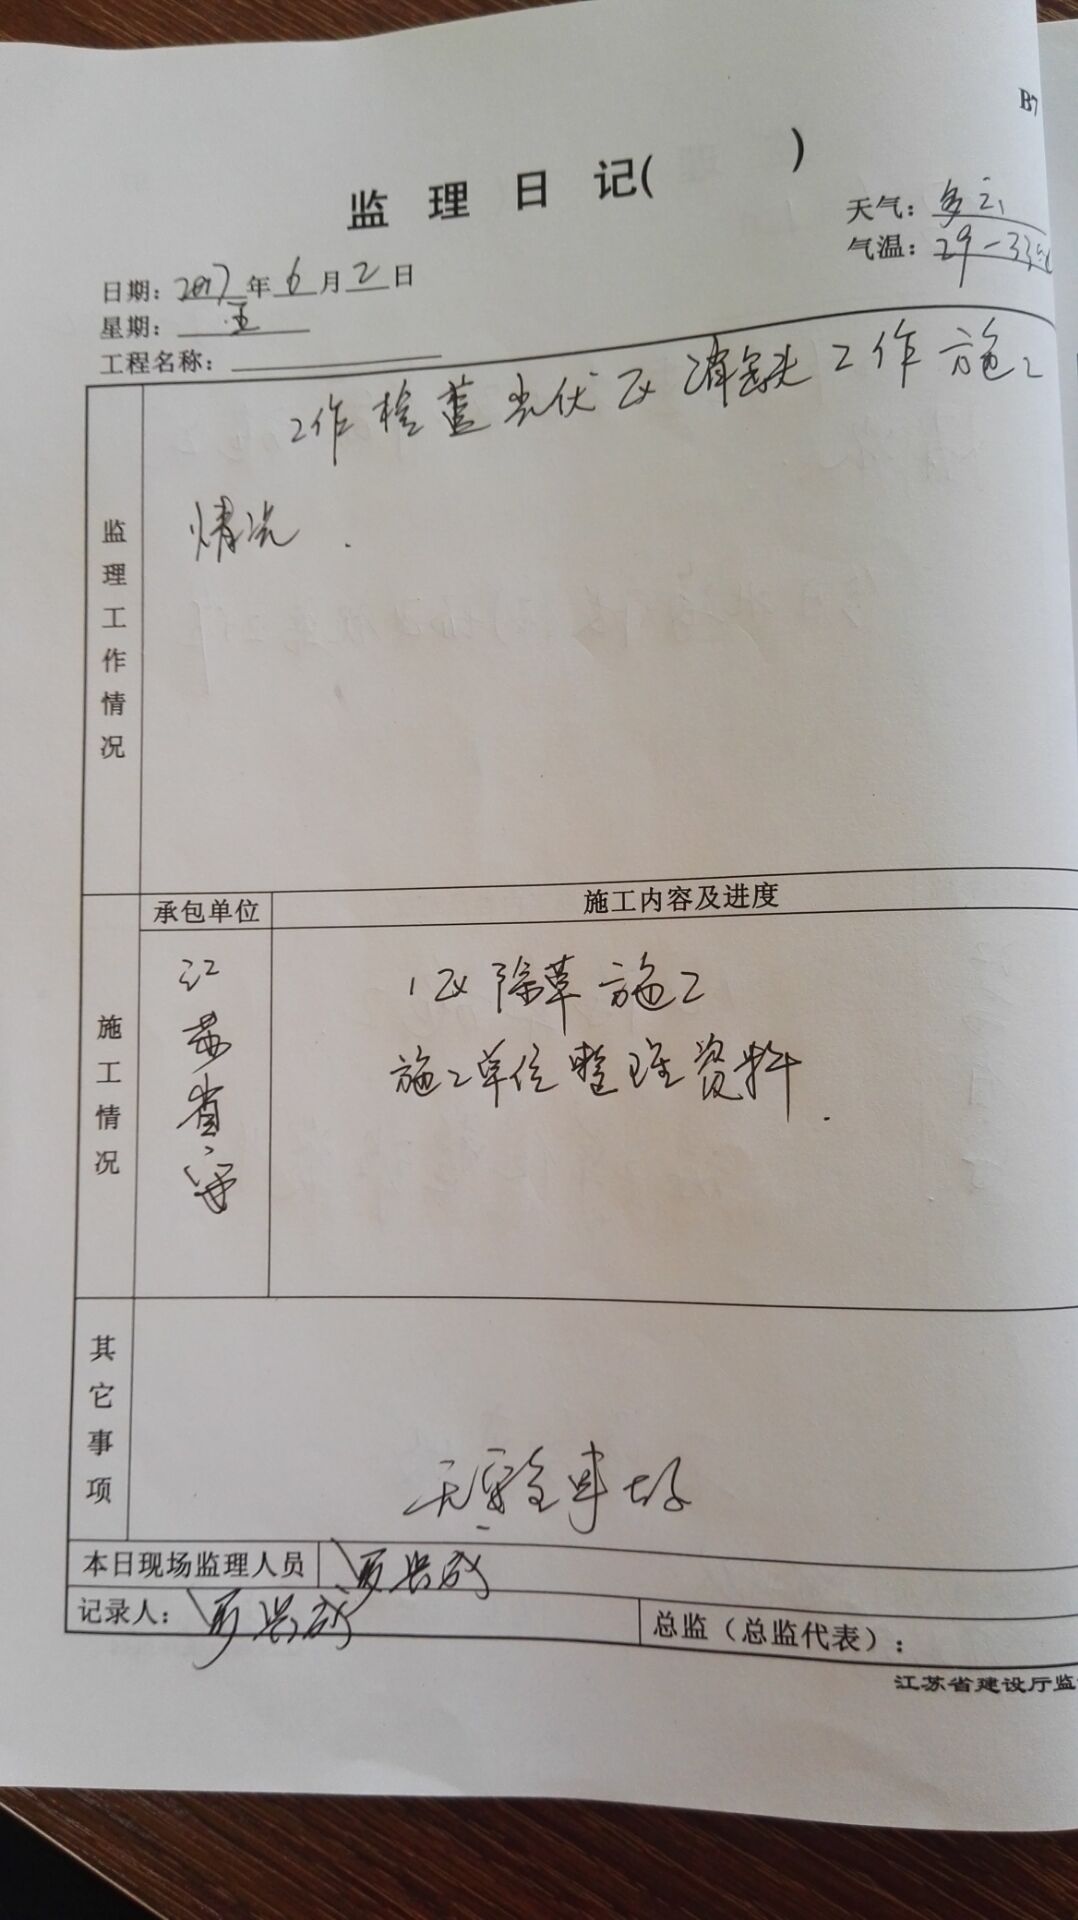 B7
监 理 日 记( )
天气：多云
气温：29-33℃
日期：2017年6月2日
星期：五
工程名称：
监理工作情况
工作检查光伏区消缺工作施工
情况.
承包单位
施工内容及进度
施工情况
江苏省安
1区除草施工
施工单位整理资料.
其它事项
无安全事故
本日现场监理人员
记录人：
总监（总监代表）：
江苏省建设厅监